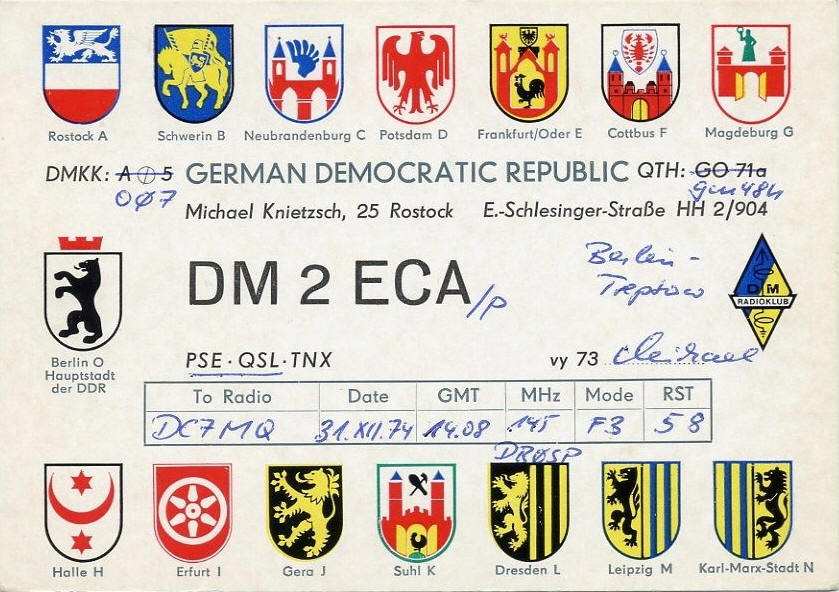 Rostock A Schwerin B Neubrandenburg C Potsdam D Frankfurt/Oder E Cottbus F Magdeburg G
DMKK: A 5 GERMAN DEMOCRATIC REPUBLIC QTH: GO 71a
OØ7 gm48h
Michael Knietzsch, 25 Rostock E.-Schlesinger-Straße HH 2/904
DM 2 ECA/p
Berlin-
Treptow
DM
RADIOKLUB
Berlin O
Hauptstadt
der DDR
PSE · QSL · TNX vy 73 Michael
To Radio Date GMT MHz Mode RST
DC7MQ 31.XII.74 14.08 145 F3 58
DBØSP
Halle H Erfurt I Gera J Suhl K Dresden L Leipzig M Karl-Marx-Stadt N